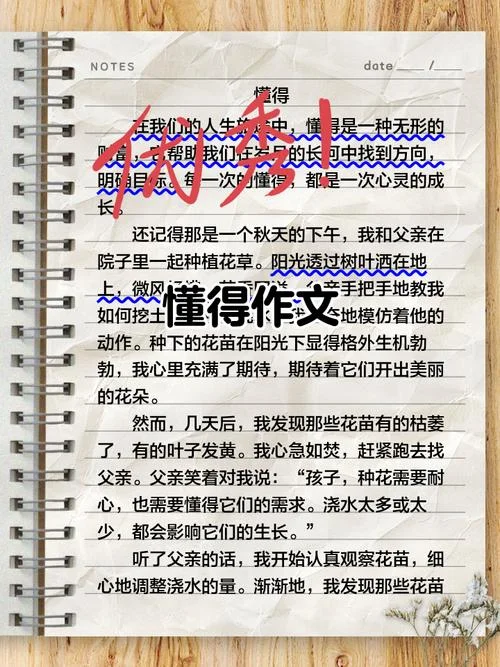 NOTES
date ____ / ____
懂得
优秀!
在我们的人生旅途中，懂得是一种无形的
财富，它帮助我们在岁月的长河中找到方向，
明确目标。每一次的懂得，都是一次心灵的成
长。
还记得那是一个秋天的下午，我和父亲在
院子里一起种植花草。阳光透过树叶洒在地
上，微风
亲手把手地教我
懂得作文
如何挖土
地模仿着他的
动作。种下的花苗在阳光下显得格外生机勃
勃，我心里充满了期待，期待着它们开出美丽
的花朵。
然而，几天后，我发现那些花苗有的枯萎
了，有的叶子发黄。我心急如焚，赶紧跑去找
父亲。父亲笑着对我说：“孩子，种花需要耐
心，也需要懂得它们的需求。浇水太多或太
少，都会影响它们的生长。”
听了父亲的话，我开始认真观察花苗，细
心地调整浇水的量。渐渐地，我发现那些花苗